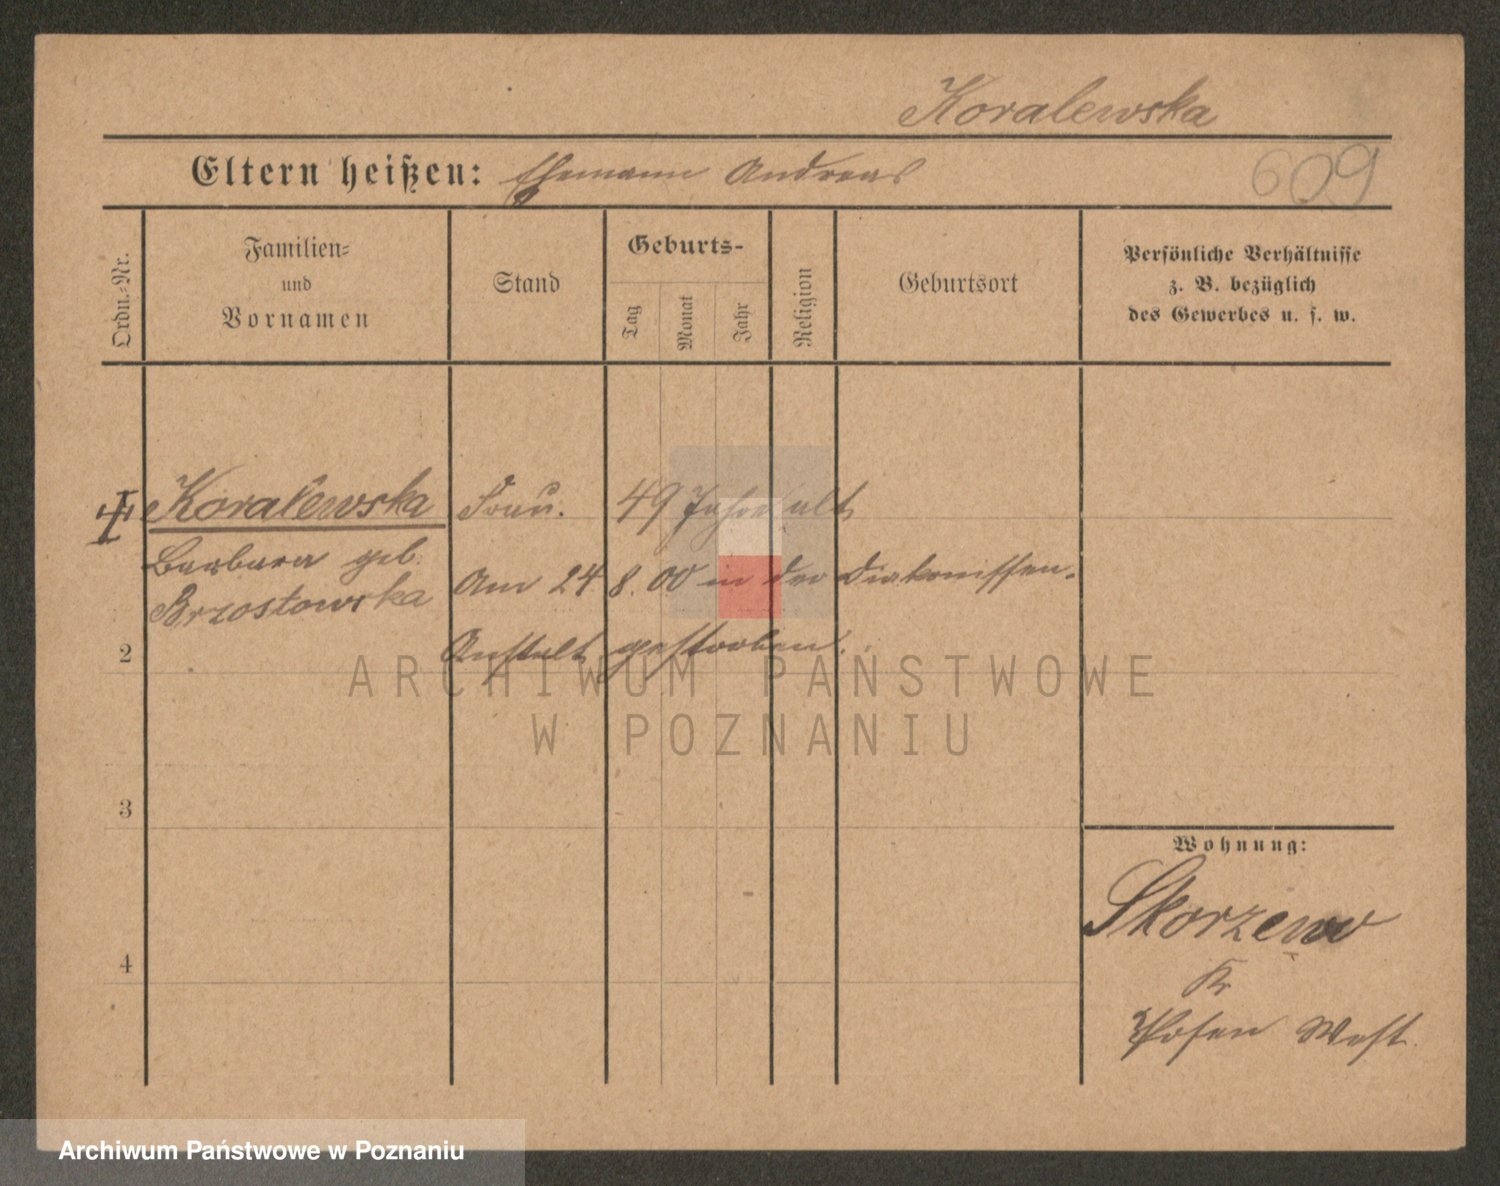 Koralewska
Eltern heißen: Ehemann Andreas
609
Ordn.-Nr.
Familien-
und
Vornamen
Stand
Geburts-
Tag
Monat
Jahr
Religion
Geburtsort
Persönliche Verhältnisse
z. B. bezüglich
des Gewerbes u. s. w.
Koralewska Frau. 49 Jahre alt
Barbara geb.
Brzostowska
Am 24. 8. 00 in der Diakonissen-
Anstalt gestorben.
2
3
4
Wohnung:
Skorzewo
Kr
Posen West.
ARCHIWUM PAŃSTWOWE
W POZNANIU
Archiwum Państwowe w Poznaniu